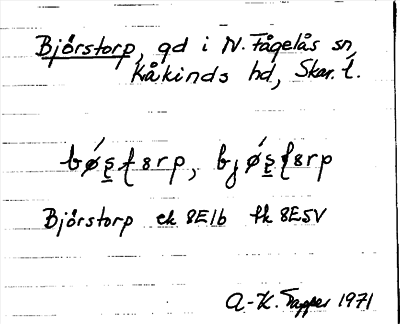 Björstorp, gd i N. Fågelås sn,
Kåkinds hd, Skar. l.
bǿs̱tɛrp, bjǿs̱tɛrp
Björstorp ek 8E1b fk 8E5V
A-K. 1971